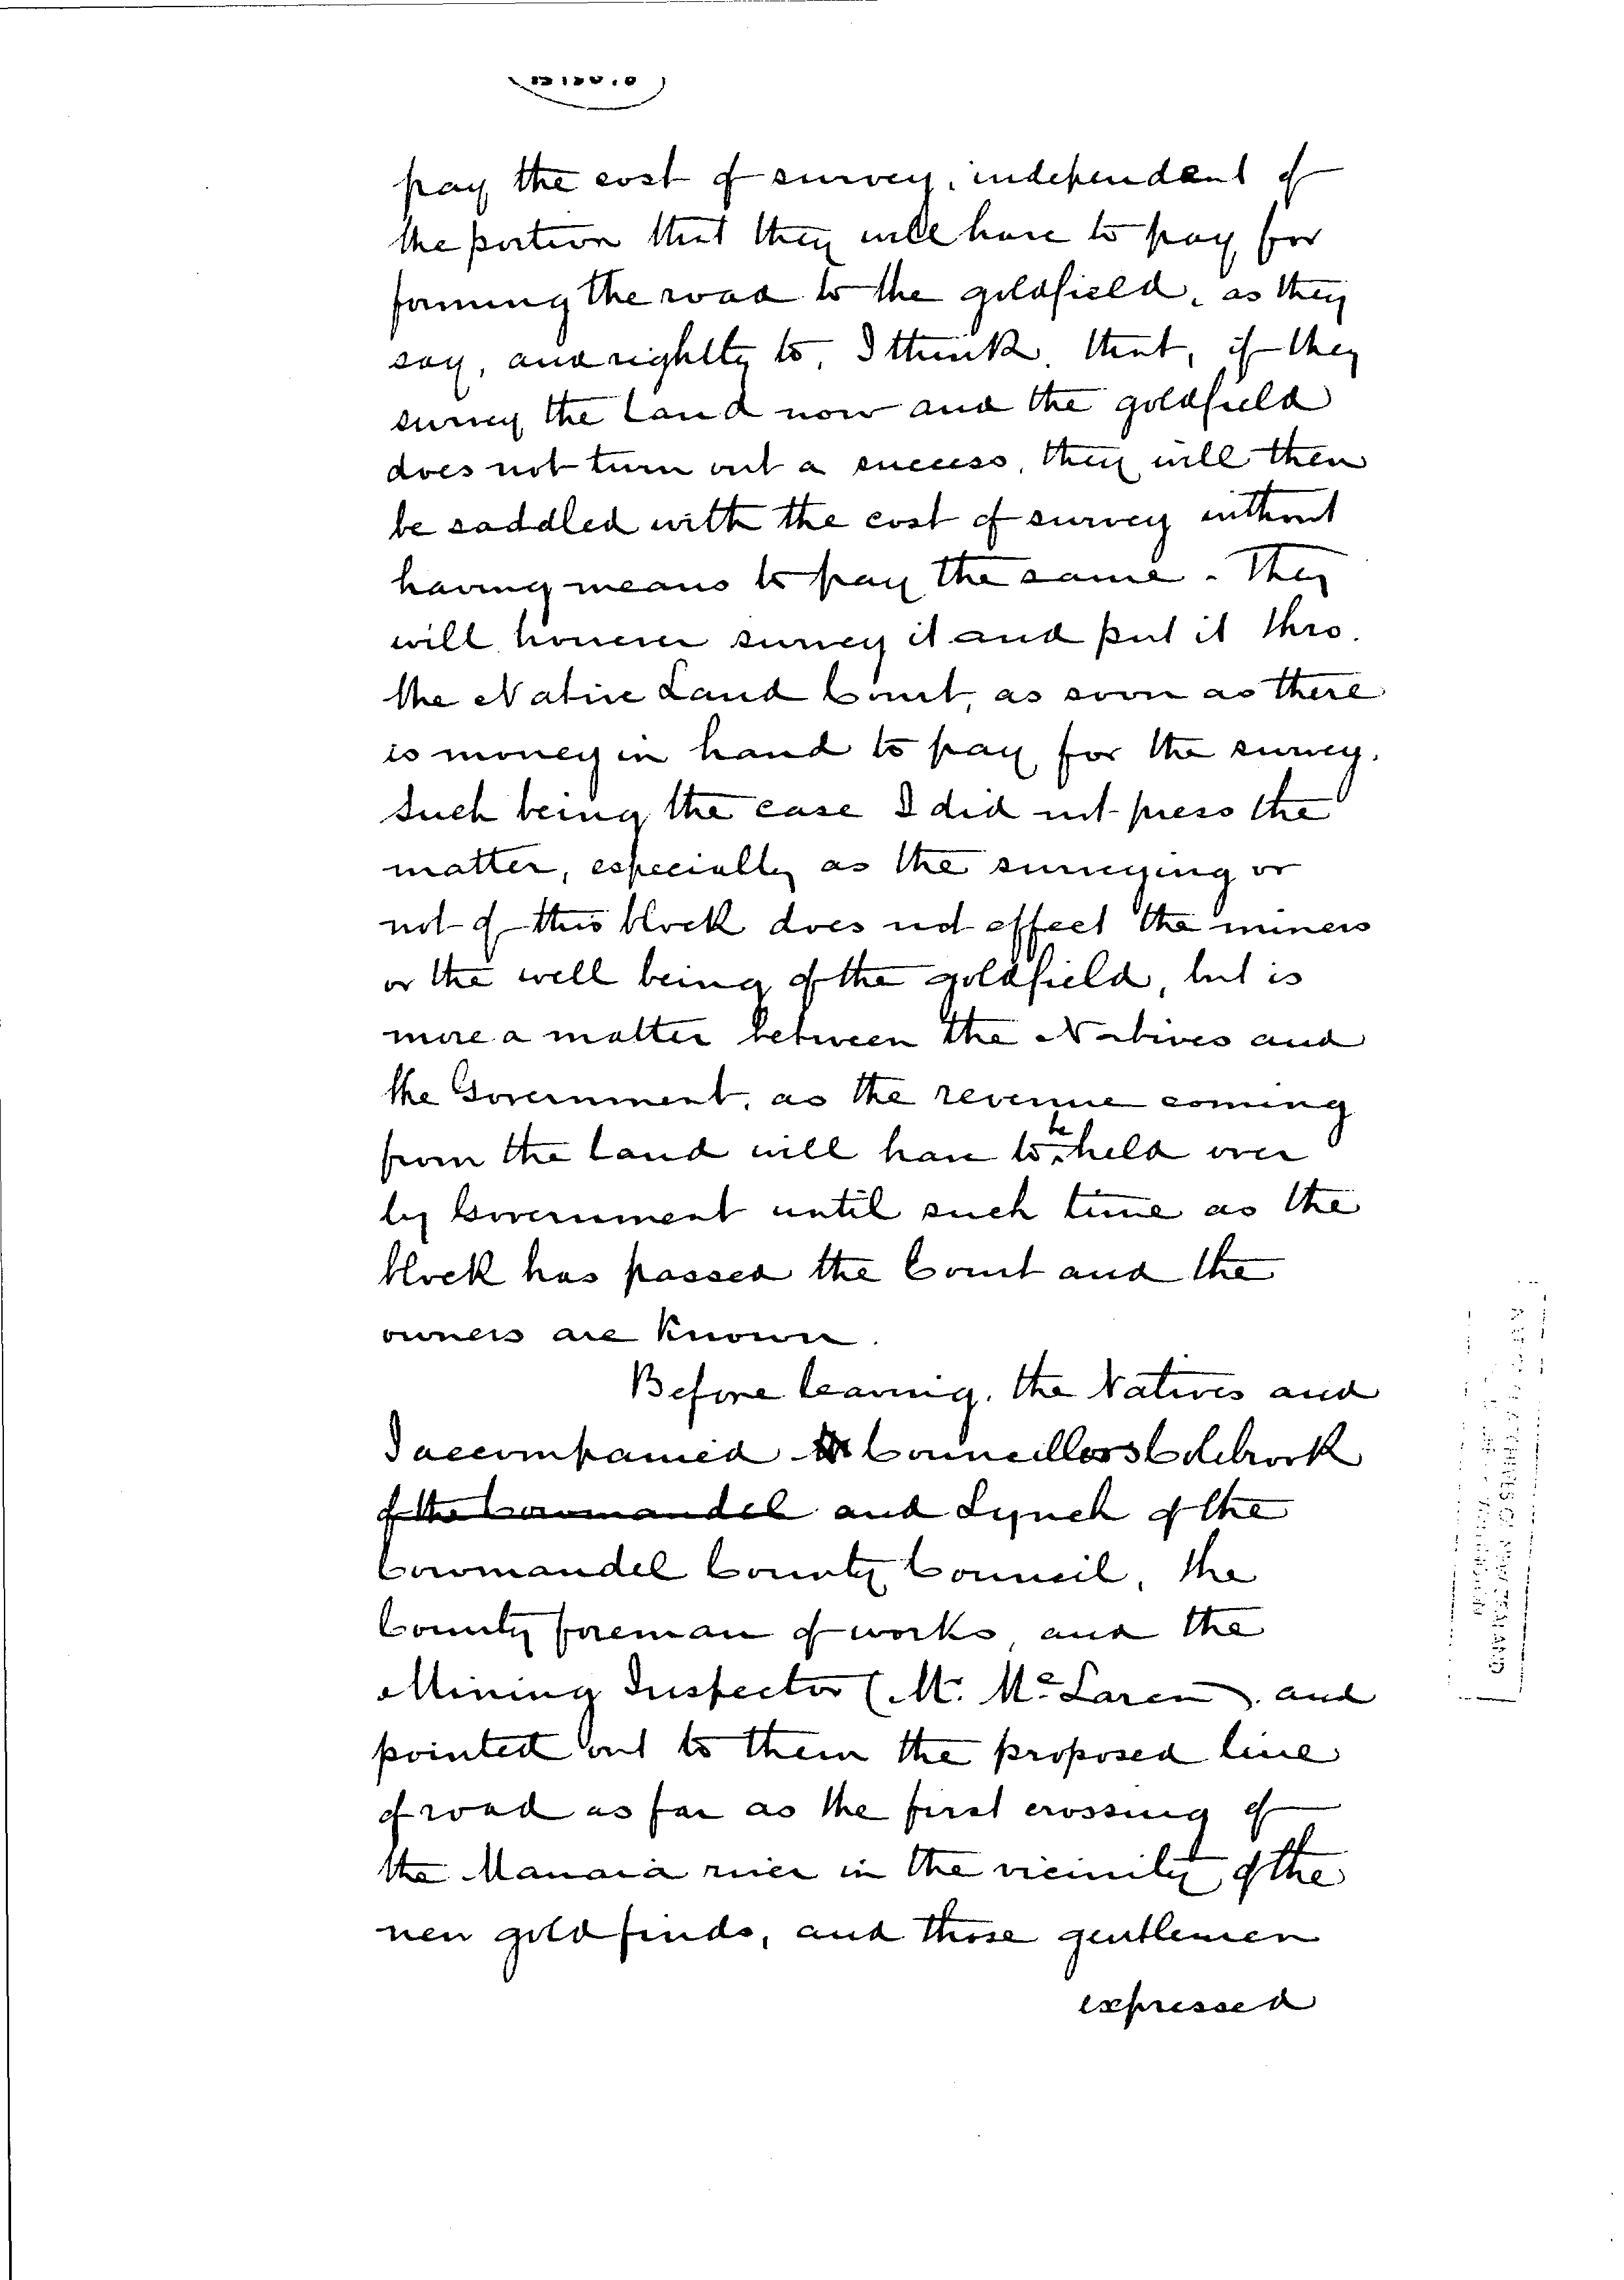 pay the cost of survey, independent of
the portion that they will have to pay for
forming the road to the goldfield, as they
say, and rightly to, I think, that, if they
survey the land now and the goldfield
does not turn out a success, they will then
be saddled with the cost of survey without
having means to pay the same. They
will however survey it and put it thro.
the Native Land Court, as soon as there
is money in hand to pay for the survey.
Such being the case I did not press the
matter, especially as the surveying or
not of this block does not effect the miners
or the well being of the goldfield, but is
more a matter between the Natives and
the Government, as the revenue coming
from the land will have to be held over
by Government until such time as the
block has passed the Court and the
owners are known.
Before leaving, the Natives and
I accompanied Councillors Colebrook
of the Coromandel and Lynch of the
Coromandel County Council, the
County foreman of works, and the
Mining Inspector (Mr. McLaren), and
pointed out to them the proposed line
of road as far as the first crossing of
the Manaia river in the vicinity of the
new gold finds, and those gentlemen
expressed